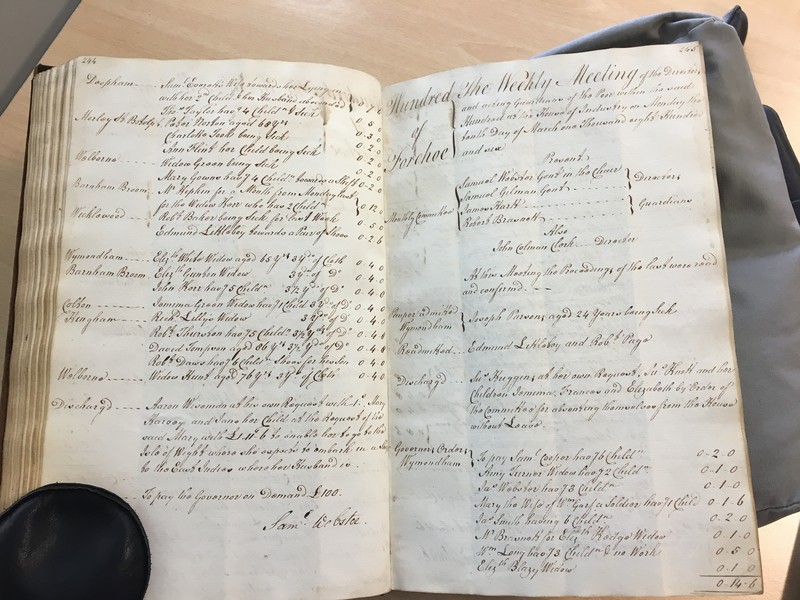 244
Deopham Sam.l Everets Wife towards her Lying
with her 2.d Child her Husband absconded
Tho.s Taylor has 4 Child.n & Sick
Morley S.t Botolph Peter Norton aged 69 y.rs
Charlotte Tooke being Sick
Ann Flint her Child being Sick
Welborne Widow Green being Sick
Mary Gowns has 4 Child.n towards a Shift 0-2-0
Barnham Broom M.r Pepkin for a Month from Monday last
for the Widow Herr who has 2 Child.n
Wicklewood Rob.t Baker being Sick for last Week 0-5-0
Edmund Littleboy towards a Pair of Shoes 0-2-6
Wymondham Eliz.th White Widow aged 65 y.rs 3 y.ds of Cloth 0-4-0
Barnham Broom Eliz.th Gunton Widow 3 y.ds of D.o 0-4-0
John Kerr has 5 Child.n 3½ y.ds of D.o 0-4-0
Colton Jemima Green Widow has 1 Child 3 y.ds of D.o 0-4-0
Hengham Rich.d Lillys Widow 3 y.ds of D.o 0-4-0
Rob.t Thurston has 5 Child.n 3½ y.ds of D.o 0-4-0
David Tompson aged 86 y.rs 3½ y.ds of D.o 0-4-0
Rob.t Daws has 6 Child.n Shoes for his Son 0-4-0
Welborne Widow Hunt aged 76 y.rs 3 y.ds of Cloth 0-4-0
Discharg'd Aaron Wisemin at his own Request with
Harvey and Jane her Child at the Request of the
said Mary with £1.11.6 to enable her to go to the
Isle of Wight where she expects to embark in a
to the East Indies where her Husband is.
To pay the Governor on Demand £100.
Sam.l Webster.
245
Hundred of Forehoe
The Weekly Meeting of the Directors
and acting Guardians of the Poor within the said
Hundred at the House of Industry on Monday the
tenth Day of March one Thousand eight Hundred
and six
Present
Monthly Committee
Samuel Webster Gent. in the Chair
Samuel Gilman Gent.
Directors
James Hart
Robert Brasnett
Guardians
Also
John Colman Clerk Director
At this Meeting the Proceedings of the last were read
and confirmed.
Pauper admitted
Wymondham
Joseph Parson, aged 24 Years being Sick
Readmitted Edmund Littleboy and Rob.t Page
Discharg'd Ja.s Huggens at her own Request, Ja.s Hart and her
Children Jemima, Frances and Elizabeth by Order of
the Committee for absenting themselves from the House
without Leave.
Governor Order'd
Wymondham
To pay Sam.l Cooper has 6 Child.n 0-2-0
Amy Turner Widow has 2 Child.n 0-1-0
Ja.s Webster has 3 Child.n 0-1-0
Mary the Wife of W.m Gay a Soldier has 1 Child 0-1-6
Ja.s Smith having 6 Child.n 0-2-0
M.r Brasnett for Eliz.th Hodge Widow 0-1-0
W.m Long has 3 Child.n & no Work 0-5-0
Eliz.th Blazy Widow 0-1-0
0-14-6